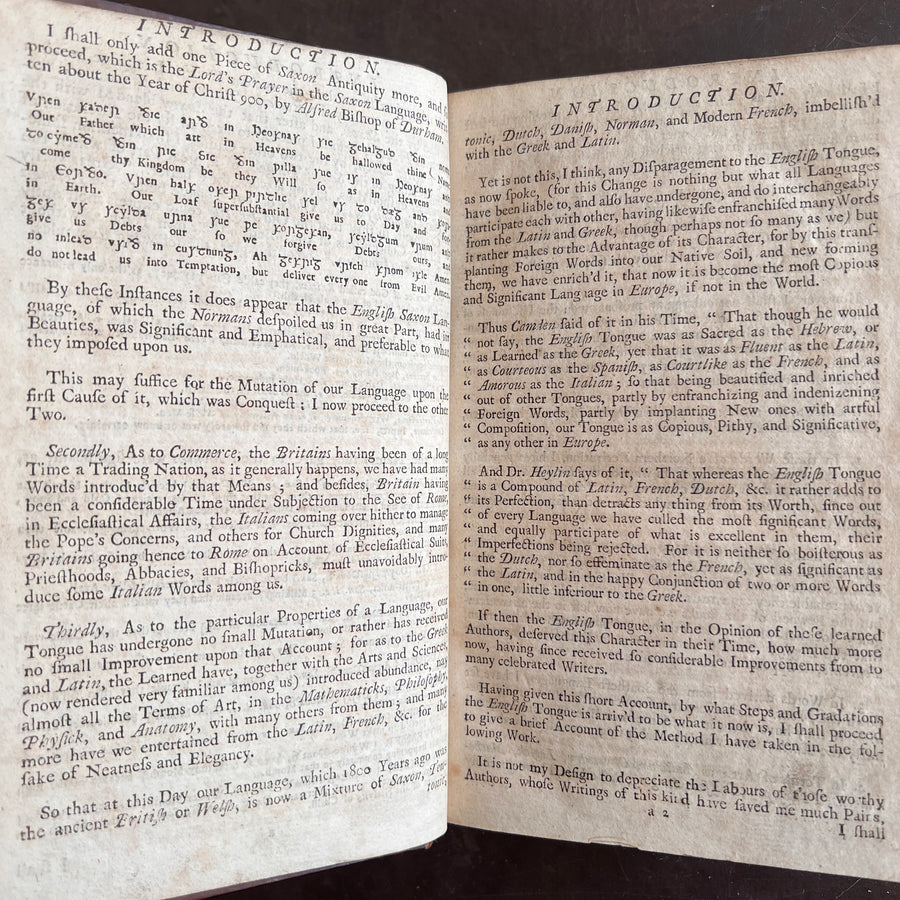 INTRODUCTION.
I ſhall only add one Piece of Saxon Antiquity more, and
proceed, which is the Lord's Prayer in the Saxon Language,
ten about the Year of Chriſt 900, by Alfred Biſhop of Durham.
in
Our Father which art in Heavens be hallowed thine Name
come thy Kingdom be they Will ſo as in Heavens and
in
in Earth. Our Loaf ſuperſubſtantial give us to Day and
give us Debts our ſo we forgive Debts ours, and
in
do not lead us into Temptation, but deliver every one from Evil Amen.
By theſe Inſtances it does appear that the Engliſh Saxon Lan-
guage, of which the Normans deſpoiled us in great Part, had its
Beauties, was Significant and Emphatical, and preferable to what
they impoſed upon us.
This may ſuffice for the Mutation of our Language upon the
firſt Cauſe of it, which was Conqueſt; I now proceed to the other
Two.
Secondly, As to Commerce, the Britains having been of a long
Time a Trading Nation, as it generally happens, we have had many
Words introduc'd by that Means; and beſides, Britain having
been a conſiderable Time under Subjection to the See of Rome,
in Eccleſiaſtical Affairs, the Italians coming over hither to manage
the Pope's Concerns, and others for Church Dignities, and many
Britains going hence to Rome on Account of Eccleſiaſtical Suits,
Prieſthoods, Abbacies, and Biſhopricks, muſt unavoidably intro-
duce ſome Italian Words among us.
Thirdly, As to the particular Properties of a Language, our
Tongue has undergone no ſmall Mutation, or rather has received
no ſmall Improvement upon that Account; for as to the Greek
and Latin, the Learned have, together with the Arts and Sciences,
(now rendered very familiar among us) introduced abundance, nay
almoſt all the Terms of Art, in the Mathematicks, Philoſophy,
Phyſick, and Anatomy, with many others from them; and many
more have we entertained from the Latin, French, &c. for the
ſake of Neatneſs and Elegancy.
So that at this Day our Language, which 1800 Years ago was
the ancient Britiſh or Welſh, is now a Mixture of Saxon, Teu-
tonic,
INTRODUCTION.
tonic, Dutch, Daniſh, Norman, and Modern French, imbelliſh'd
with the Greek and Latin.
Yet is not this, I think, any Diſparagement to the Engliſh Tongue,
as now ſpoke, (for this Change is nothing but what all Languages
have been liable to, and alſo have undergone, and do interchangeably
participate each with other, having likewiſe enfranchiſed many Words
from the Latin and Greek, though perhaps not ſo many as we) but
it rather makes to the Advantage of its Character, for by this tranſ-
planting Foreign Words into our Native Soil, and new forming
them, we have enrich'd it, that now it is become the moſt Copious
and Significant Language in Europe, if not in the World.
Thus Camden ſaid of it in his Time, “ That though he would
“ not ſay, the Engliſh Tongue was as Sacred as the Hebrew, or
“ as Learned as the Greek, yet that it was as Fluent as the Latin,
“ as Courteous as the Spaniſh, as Courtlike as the French, and as
“ Amorous as the Italian; ſo that being beautified and inriched
“ out of other Tongues, partly by enfranchizing and indenizening
“ Foreign Words, partly by implanting New ones with artful
“ Compoſition, our Tongue is as Copious, Pithy, and Significative,
“ as any other in Europe.
And Dr. Heylin ſays of it, “ That whereas the Engliſh Tongue
“ is a Compound of Latin, French, Dutch, &c. it rather adds to
“ its Perfection, than detracts any thing from its Worth, ſince out
“ of every Language we have culled the moſt ſignificant Words,
“ and equally participate of what is excellent in them, their
“ Imperfections being rejected. For it is neither ſo boiſterous as
“ the Dutch, nor ſo effeminate as the French, yet as ſignificant as
“ the Latin, and in the happy Conjunction of two or more Words
“ in one, little inferiour to the Greek.
If then the Engliſh Tongue, in the Opinion of theſe learned
Authors, deſerved this Character in their Time, how much more
now, having ſince received ſo conſiderable Improvements from ſo
many celebrated Writers.
Having given this ſhort Account, by what Steps and Gradations
the Engliſh Tongue is arriv'd to be what it now is, I ſhall proceed
to give a brief Account of the Method I have taken in the fol-
lowing Work.
It is not my Deſign to depreciate the Labours of thoſe worthy
Authors, whoſe Writings of this kind have ſaved me much Pains,
a 2
I ſhall